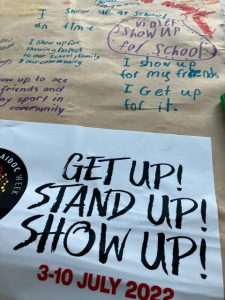 I show up at school
on time
I show up for
showing respect
to our school family
& our community
Violet
I show up
for school
I show up
for my friends
I Get up
for it.
ow up to see
friends and
ay sport in
community
AIDOC WEEK
GET UP!
STAND UP!
SHOW UP!
3-10 JULY 2022